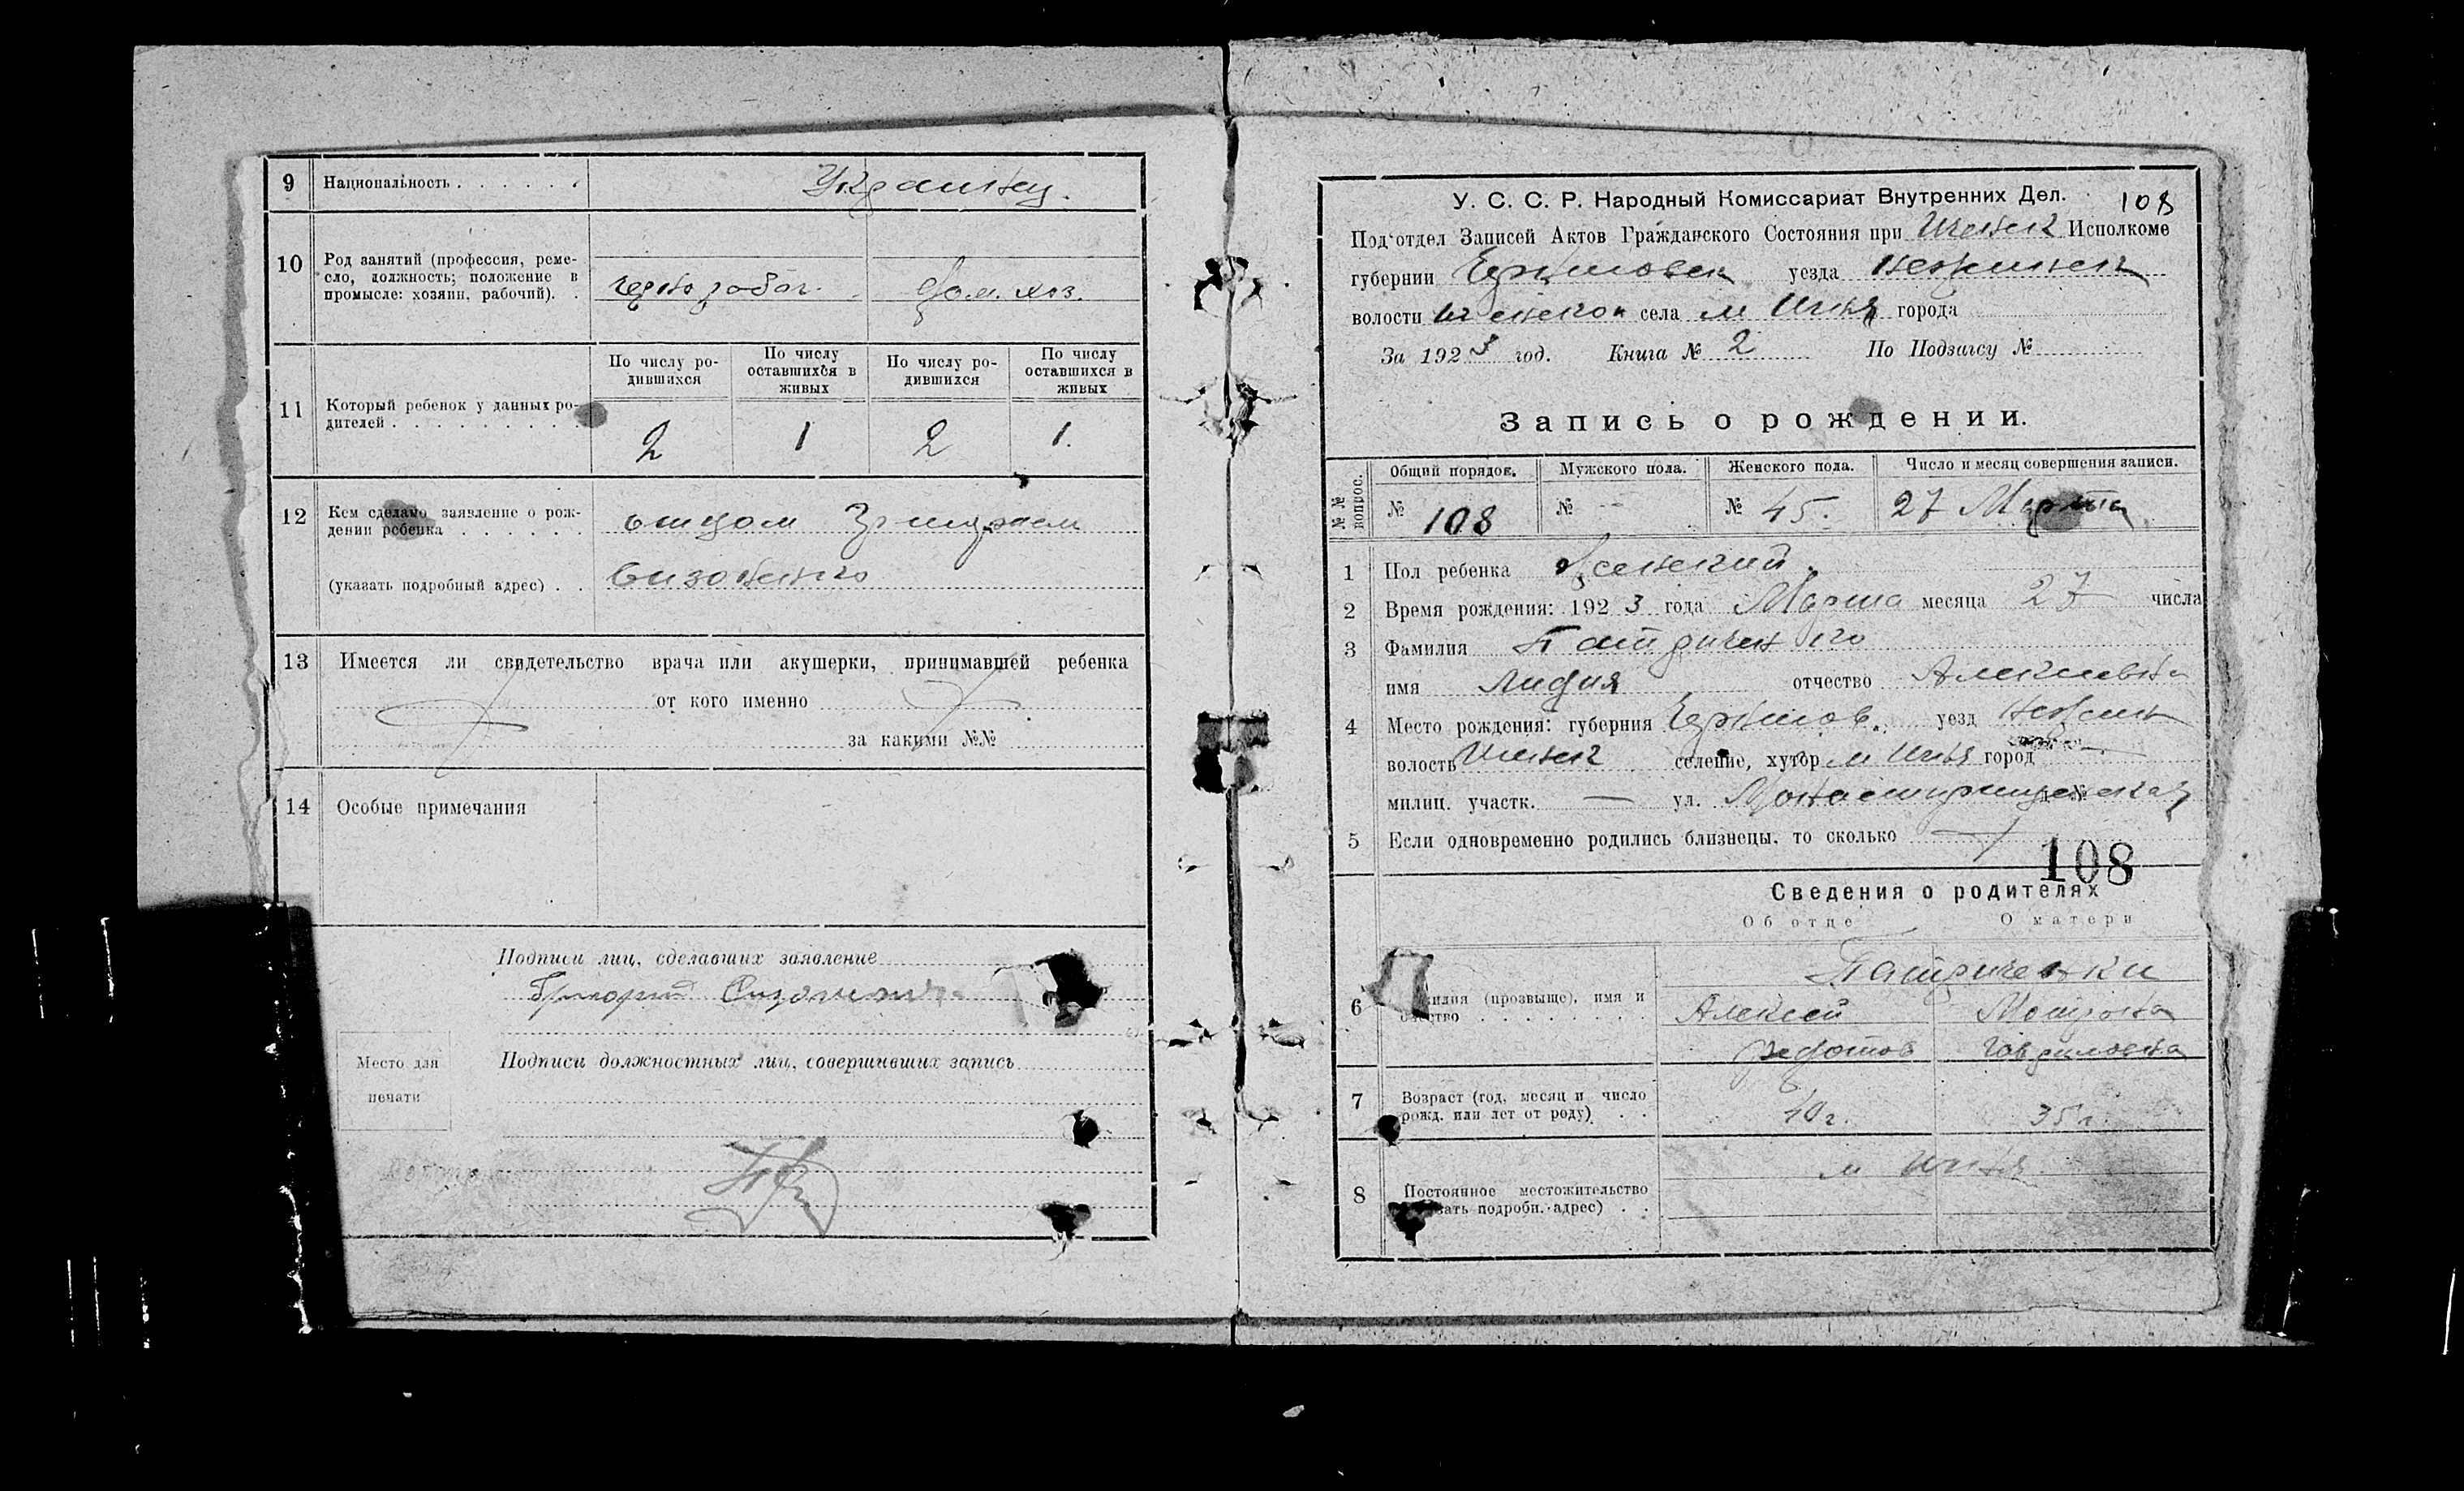 9 Национальность . . . . . . Украинец.
10 Род занятий (профессия, реме-
сло, должность; положение в
промысле: хозяин, рабочий). .
черно рабоч. Дом. хоз.
11 Который ребенок у данных ро-
дителей . . . . . . . . . .
По числу ро-
дившихся
По числу
оставшихся в
живых
По числу ро-
дившихся
По числу
оставшихся в
живых
2 1 2 1.
12 Кем сделано заявление о рож-
дении ребенка . . . . . .
отцом
(указать подробный адрес) . .
13 Имеется ли свидетельство врача или акушерки, принимавшей ребенка
от кого именно
за какими №№
14 Особые примечания
Подписи лиц, сделавших заявление
Григорий
Место для
печати
Подписи должностных лиц, совершивших запись
У. С. С. Р. Народный Комиссариат Внутренних Дел. 108
Под'отдел Записей Актов Гражданского Состояния при Ичнянск Исполкоме
губернии Черниговск уезда Нежинск
волости села м Ичня города
За 1923 год. Книга № 2 По Подзагсу №
Запись о рождении.
№№ вопрос.
Общий порядок. Мужского пола. Женского пола. Число и месяц совершения записи.
№ 108 № — № 45. 27 Марта
1 Пол ребенка Женский.
2 Время рождения: 1923 года Марта месяца 27 числа
3 Фамилия Патриченко
имя Лидия отчество Алексеевна
4 Место рождения: губерния Чернигов. уезд Нежин
волость селение, хутор м Ичня город
милиц. участк. — ул. Монастырищенская д. №
5 Если одновременно родились близнецы, то сколько
108
Сведения о родителях
Об отце О матери
6 (прозвище), имя и
Патриченки
Алексей Мотрона
Федотов Гавриловна
7 Возраст (год, месяц и число
рожд. или лет от роду) . .
40 г. 35 г.
8 Постоянное местожительство
подробн. адрес) . .
м Ичня